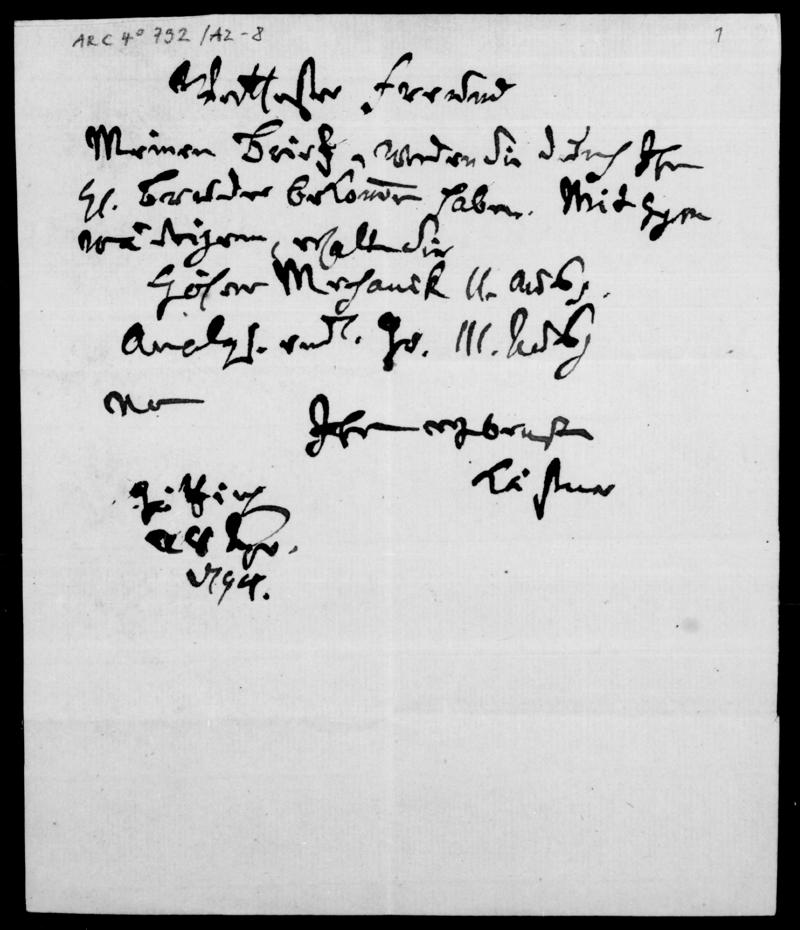 ARC 4° 792 / A2-8
1
Werthester Freund
Meinen Brief, werden Sie durch Ihrn
H. Bruder bekommen haben. Mit
erhalten Sie
Höhere Mechanik II. Ausg.
Analys. endl. Gr. III. Ausg
Ihr ergebenster
Kästner
Götting
Apr.
1794.